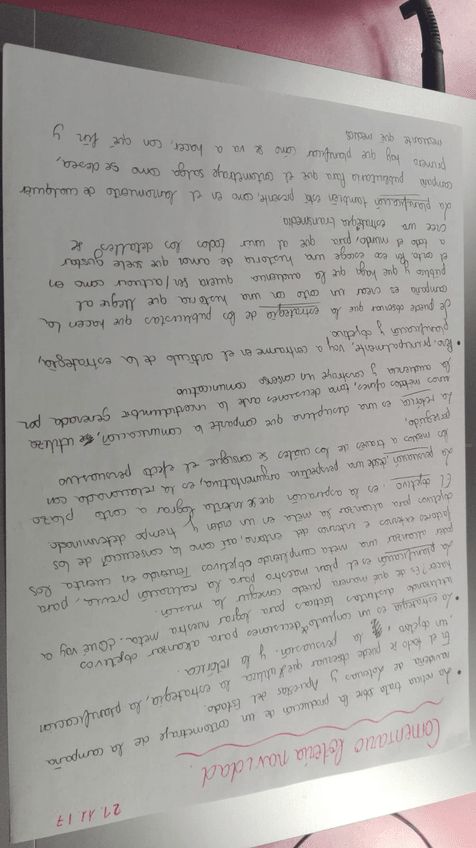 21.11.17
Comentario lotería navidad.
• La noticia trata sobre la producción de un cortometraje de la campaña
navideña de Loterías y Apuestas del Estado.
En el texto se puede observar que utiliza la estrategia, la planificación
un objetivo, la persuasión. y la retórica.
• La estrategia es un conjunto de decisiones para alcanzar objetivos
utilizando distintas tácticas para lograr nuestra meta. ¿Qué voy a
hacer? ¿Es de que manera puedo conseguir la misión.
La planificación es el plan maestro para la realización previa, para
poder alcanzar una meta cumpliendo objetivos. Teniendo en cuenta los
factores externos e internos del entorno, así como la consecución de los
objetivos para alcanzar la meta en un orden y tiempo determinado.
El objetivo: es la aspiración que se intenta lograr a corto plazo
La persuasión desde una perspectiva argumentativa, es la relacionada con
los medios a través de los cuales se consigue el efecto persuasivo
perseguido.
La retórica es una disciplina que comparte la comunicación, se utiliza
unos medios, toma decisiones ante la incertidumbre generada por
la audiencia y construye un consenso comunicativo
• principalmente, voy a centrarme en el artículo de la estrategia,
planificación y objetivo.
Se puede observar que la estrategia de los publicistas que hacen la
campaña es crear un corto con una historia que llegue al
público y que haga que la audiencia quiera ser/actuar como en
el corto. En él se escoge una historia de amor que suele gustar
a todo el mundo, para que al unir todos los detalles se
cree una estrategia transmedia
La planificación también está presente, como en el lanzamiento de cualquier
campaña publicitaria para que el cortometraje salga como se desea,
primero hay que planificar cómo se va a hacer, con qué fin y
mediante qué medios